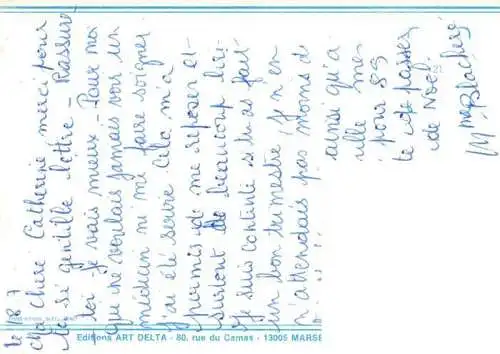 le 18.7
Ma chère Catherine merci pour
ta si gentille lettre - Rassure
toi je vais mieux - Pour moi
qui ne voulais jamais voir un
médecin ni me faire soigner
j'ai été servie Cela m'a
permis de me reposer et
surtout de beaucoup lire
Je suis contente si tu as fait
un bon trimestre Je n'en
n'attendais pas moins de
ainsi qu'à
ville
pour 89
te passer
de Noël.
Editions ART DELTA - 80, rue du Camas - 13005 MARSE